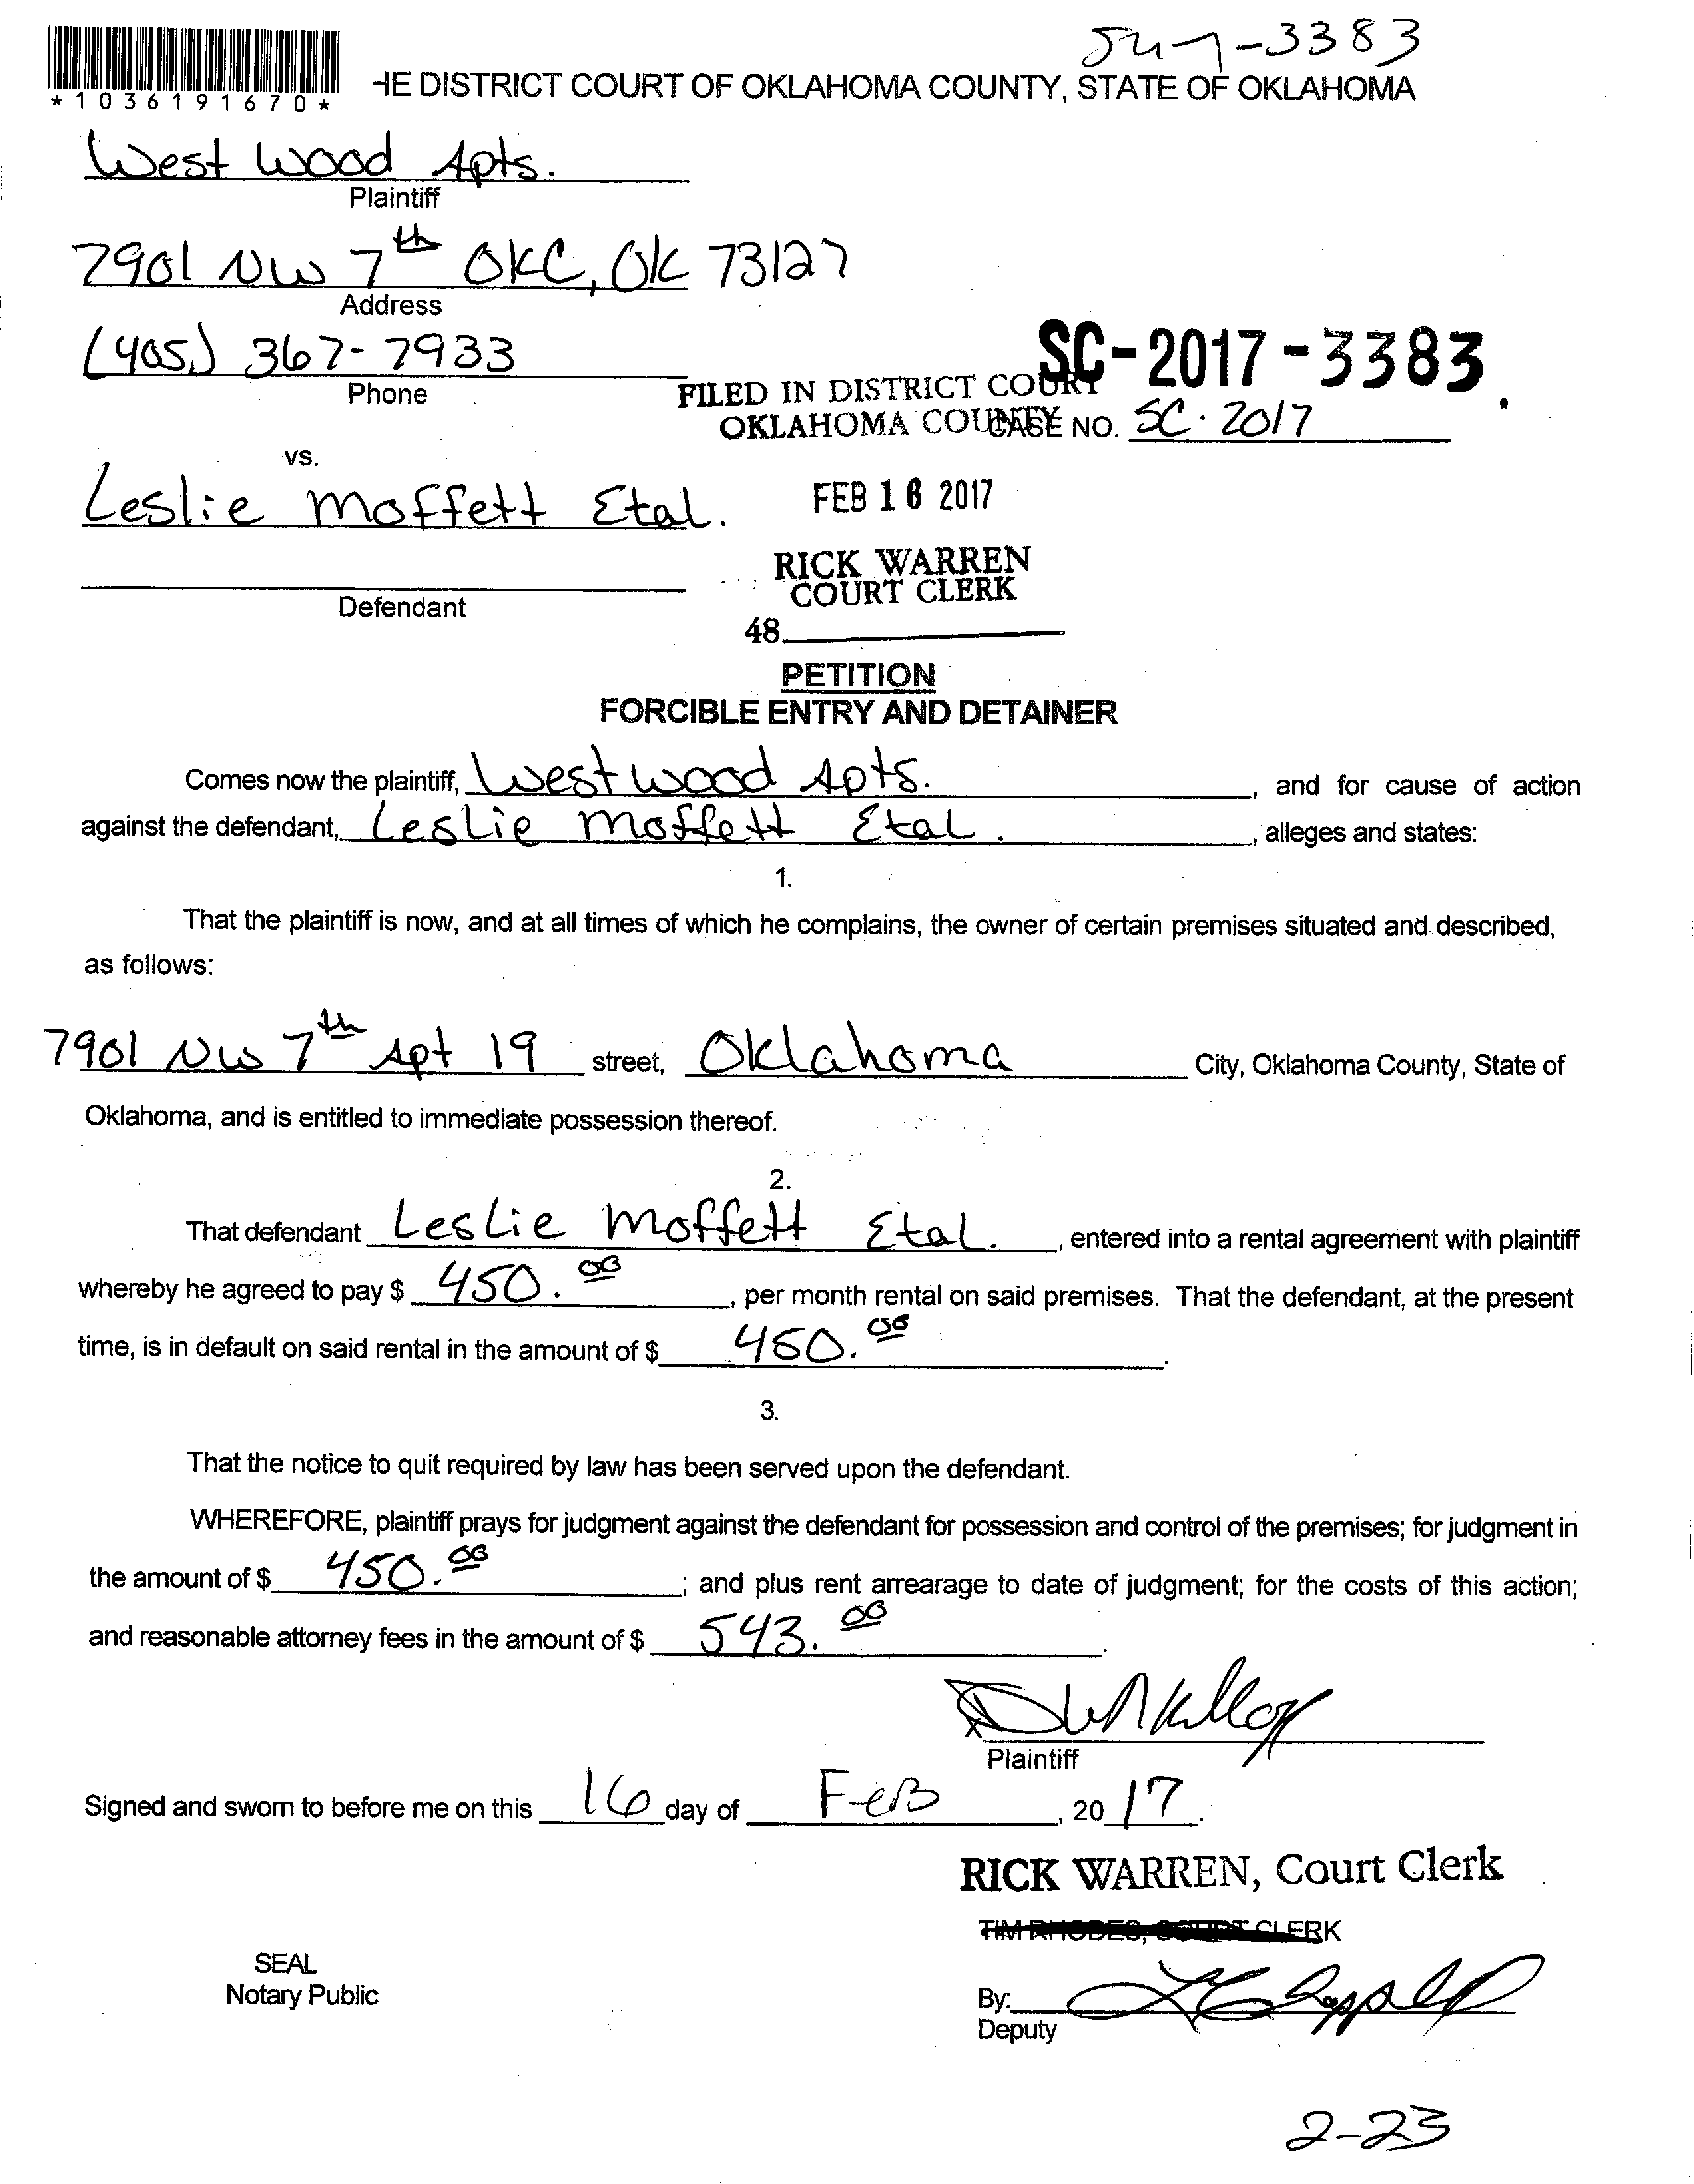 -3383
*1036191670*
HE DISTRICT COURT OF OKLAHOMA COUNTY, STATE OF OKLAHOMA
West Wood Apts.
Plaintiff
7901 NW 7th OKC, OK 73127
Address
(405) 367-7933
Phone
SC-2017-3383
FILED IN DISTRICT COURT
OKLAHOMA COUNTY
CASE NO. SC-2017
vs.
Leslie Moffett Etal.
FEB 16 2017
RICK WARREN
COURT CLERK
Defendant
48
PETITION
FORCIBLE ENTRY AND DETAINER
Comes now the plaintiff, Westwood Apts. , and for cause of action
against the defendant, Leslie Moffett Etal. , alleges and states:
1.
That the plaintiff is now, and at all times of which he complains, the owner of certain premises situated and described,
as follows:
7901 NW 7th Apt 19 street, Oklahoma City, Oklahoma County, State of
Oklahoma, and is entitled to immediate possession thereof.
2.
That defendant Leslie Moffett Etal. , entered into a rental agreement with plaintiff
whereby he agreed to pay $ 450.00 , per month rental on said premises. That the defendant, at the present
time, is in default on said rental in the amount of $ 450.00 .
3.
That the notice to quit required by law has been served upon the defendant.
WHEREFORE, plaintiff prays for judgment against the defendant for possession and control of the premises; for judgment in
the amount of $ 450.00 ; and plus rent arrearage to date of judgment; for the costs of this action;
and reasonable attorney fees in the amount of $ 543.00 .
Plaintiff
Signed and sworn to before me on this 16 day of Feb , 20 17.
RICK WARREN, Court Clerk
TIM RHODES, COURT CLERK
SEAL
Notary Public
By:
Deputy
2-23